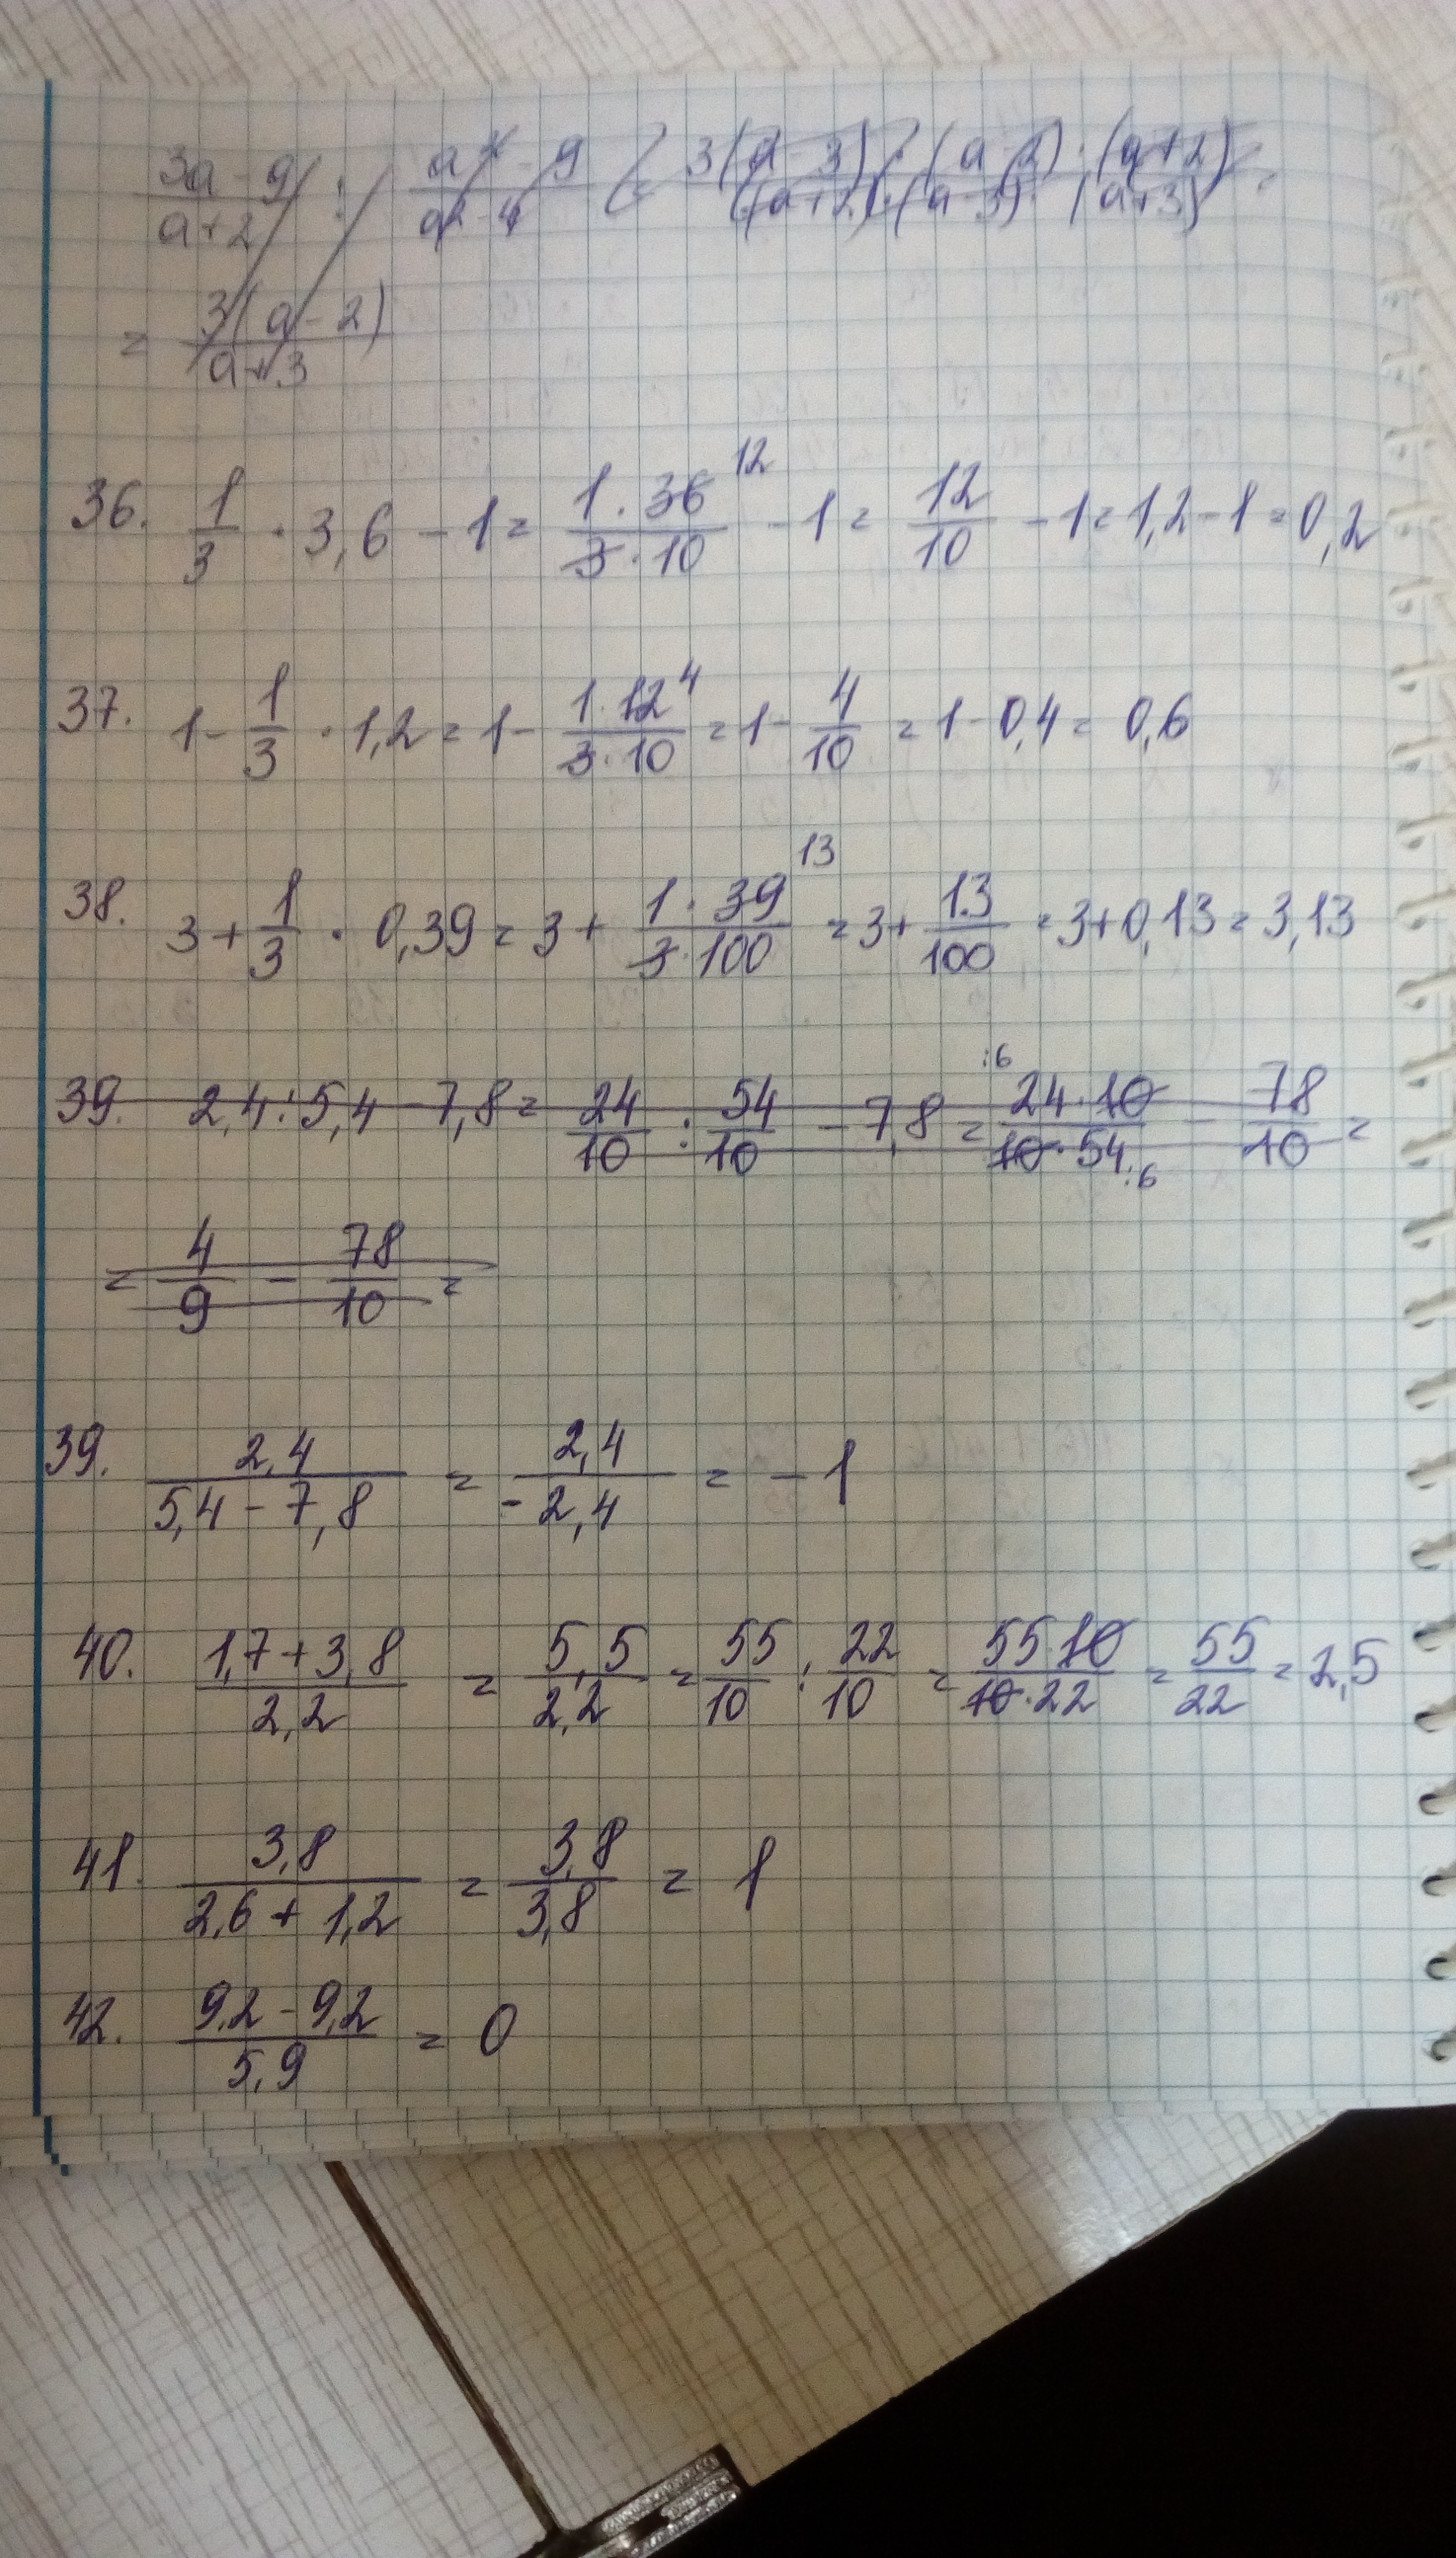 (3a - 9)/(a + 2) : (a² - 9)/(a² - 4) = (3(a - 3) · (a - 2) · (a + 2))/((a + 2) · (a - 3) · (a + 3)) =
= (3(a - 2))/(a + 3)
36. 1/3 · 3,6 - 1 = (1 · 36 12)/(3 · 10) - 1 = 12/10 - 1 = 1,2 - 1 = 0,2
37. 1 - 1/3 · 1,2 = 1 - (1 · 12 4)/(3 · 10) = 1 - 4/10 = 1 - 0,4 = 0,6
38. 3 + 1/3 · 0,39 = 3 + (1 · 39 13)/(3 · 100) = 3 + 13/100 = 3 + 0,13 = 3,13
39. 2,4 : 5,4 - 7,8 = 24/10 : 54/10 - 7,8 = (:6 24 · 10)/(10 · 54 :6) - 78/10 =
= 4/9 - 78/10 =
39. 2,4/(5,4 - 7,8) = 2,4/(-2,4) = -1
40. (1,7 + 3,8)/2,2 = 5,5/2,2 = 55/10 : 22/10 = (55 · 10)/(10 · 22) = 55/22 = 2,5
41. 3,8/(2,6 + 1,2) = 3,8/3,8 = 1
42. (9,2 - 9,2)/5,9 = 0